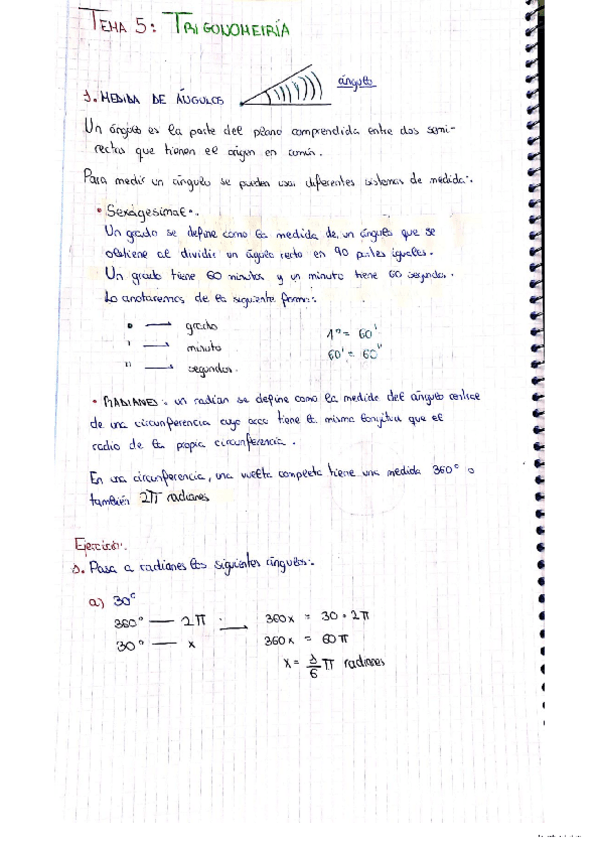 TEMA 5: TRIGONOMETRÍA
1. MEDIDA DE ÁNGULOS
ángulo
Un ángulo es la parte del plano comprendida entre dos semi-
rectas que tienen el origen en común.
Para medir un ángulo se pueden usar diferentes sistemas de medida:
• Sexagesimal:
Un grado se define como la medida de un ángulo que se
obtiene al dividir un águlo recto en 90 partes iguales.
Un grado tiene 60 minutos y un minuto tiene 60 segundos.
Lo anotaremos de la siguiente forma:
° → grado
' → minuto
'' → segundos.
1° = 60'
60' = 60''
• RADIANES: un radian se define como la medida del ángulo
de una circunferencia cuyo arco tiene la misma longitud que el
radio de la propia circunferencia.
En una circunferencia, una vuelta completa tiene una medida 360° o
también 2π radianes
Ejercicio:
1. Pasa a radianes los siguientes ángulos:
a) 30°
360° — 2π → 360x = 30 · 2π
30° — x 360x = 60π
x = 1/6 π radianes